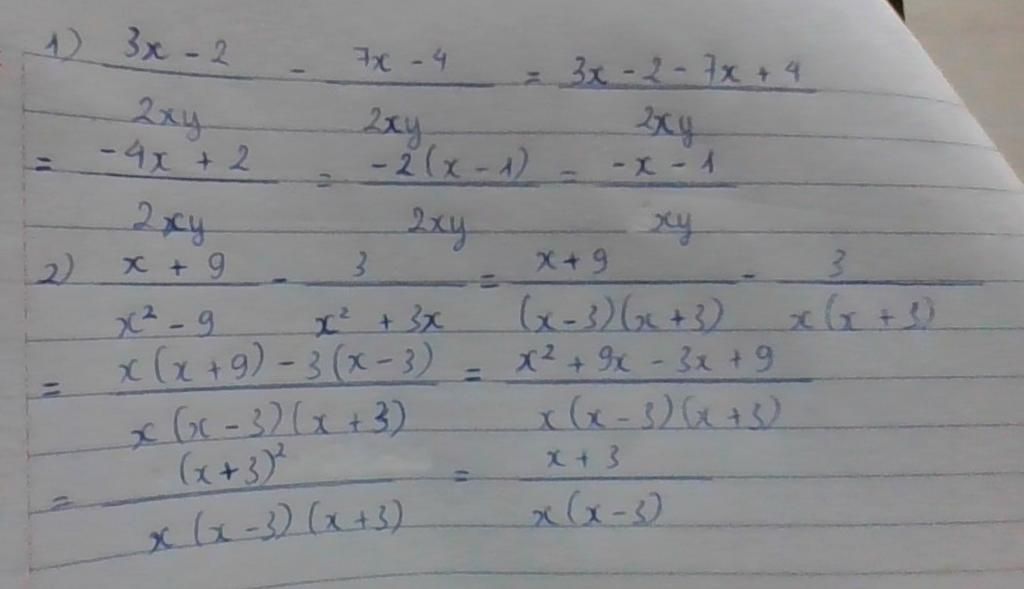 1) (3x - 2)/(2xy) - (7x - 4)/(2xy) = (3x - 2 - 7x + 4)/(2xy)
= (-4x + 2)/(2xy) = (-2(x - 1))/(2xy) = (-x - 1)/(xy)
2) (x + 9)/(x² - 9) - 3/(x² + 3x) = (x + 9)/((x - 3)(x + 3)) - 3/(x(x + 3))
= (x(x + 9) - 3(x - 3))/(x(x - 3)(x + 3)) = (x² + 9x - 3x + 9)/(x(x - 3)(x + 3))
= (x + 3)²/(x(x - 3)(x + 3)) = (x + 3)/(x(x - 3))